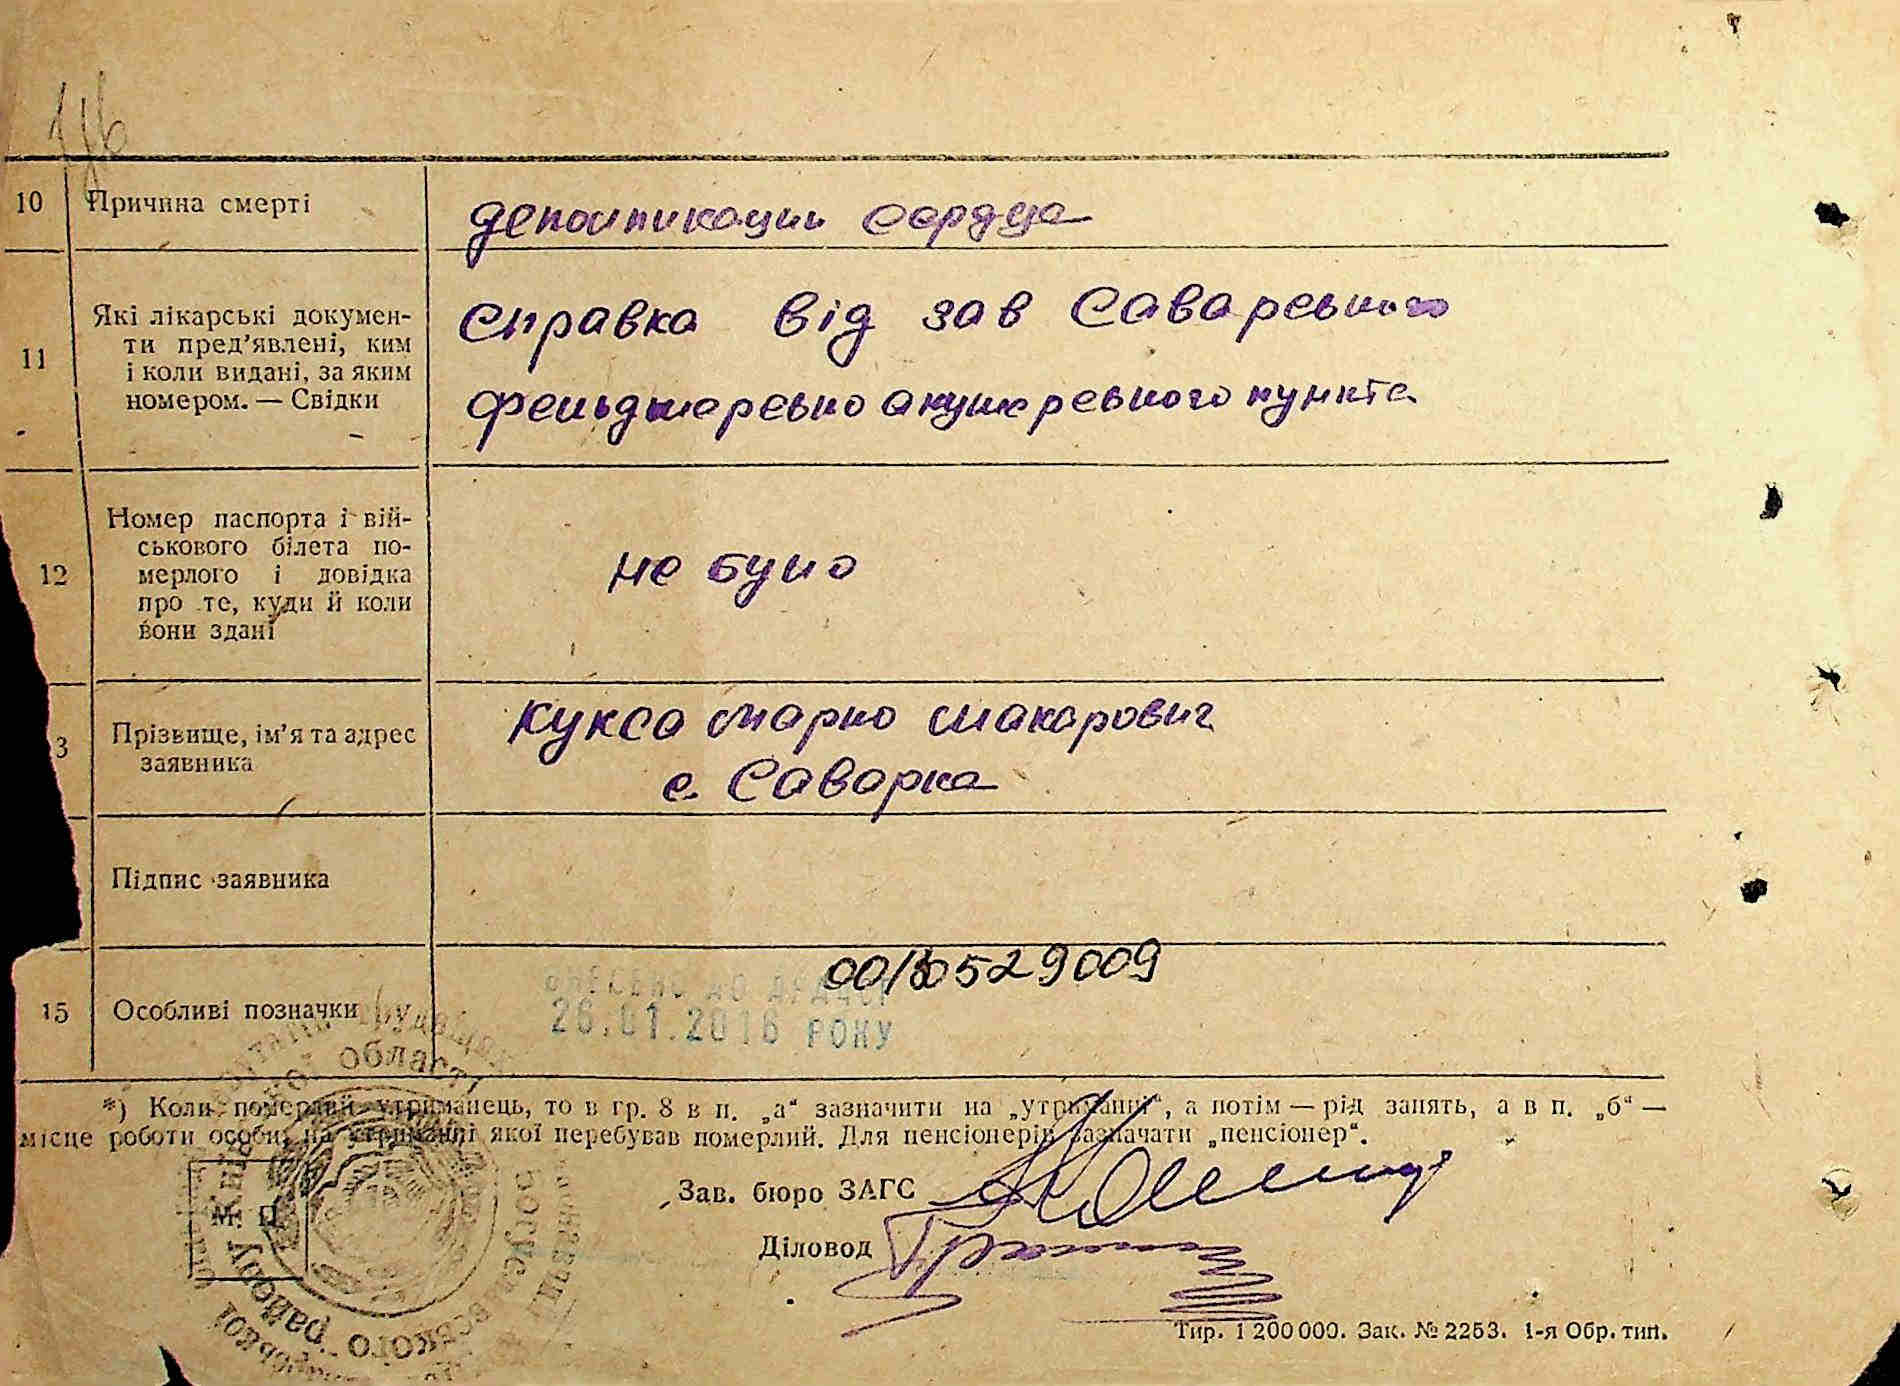 10 Причина смерті
сердца
11 Які лікарські докумен-
ти пред’явлені, ким
і коли видані, за яким
номером. — Свідки
справка від зав Саварського
фельдшерсько акушерського пункта
12 Номер паспорта і вій-
ськового білета по-
мерлого і довідка
про те, куди й коли
вони здані
не було
3 Прізвище, ім’я та адрес
заявника
Кукса Марко Макарович
с. Саварка
Підпис заявника
15 Особливі позначки
00130529009
ВНЕСЕНО ДО ДРАЦСГ
26.01.2016 РОКУ
*) Коли померлий утриманець, то в гр. 8 в п. „а“ зазначити на „утриманні“, а потім — рід занять, а в п. „б“ —
місце роботи особи, на утриманні якої перебував померлий. Для пенсіонерів зазначати „пенсіонер“.
М. П.
Зав. бюро ЗАГС
Діловод
області
Богуславського району
Тир. 1 200 000. Зак. № 2253. 1-я Обр. тип.